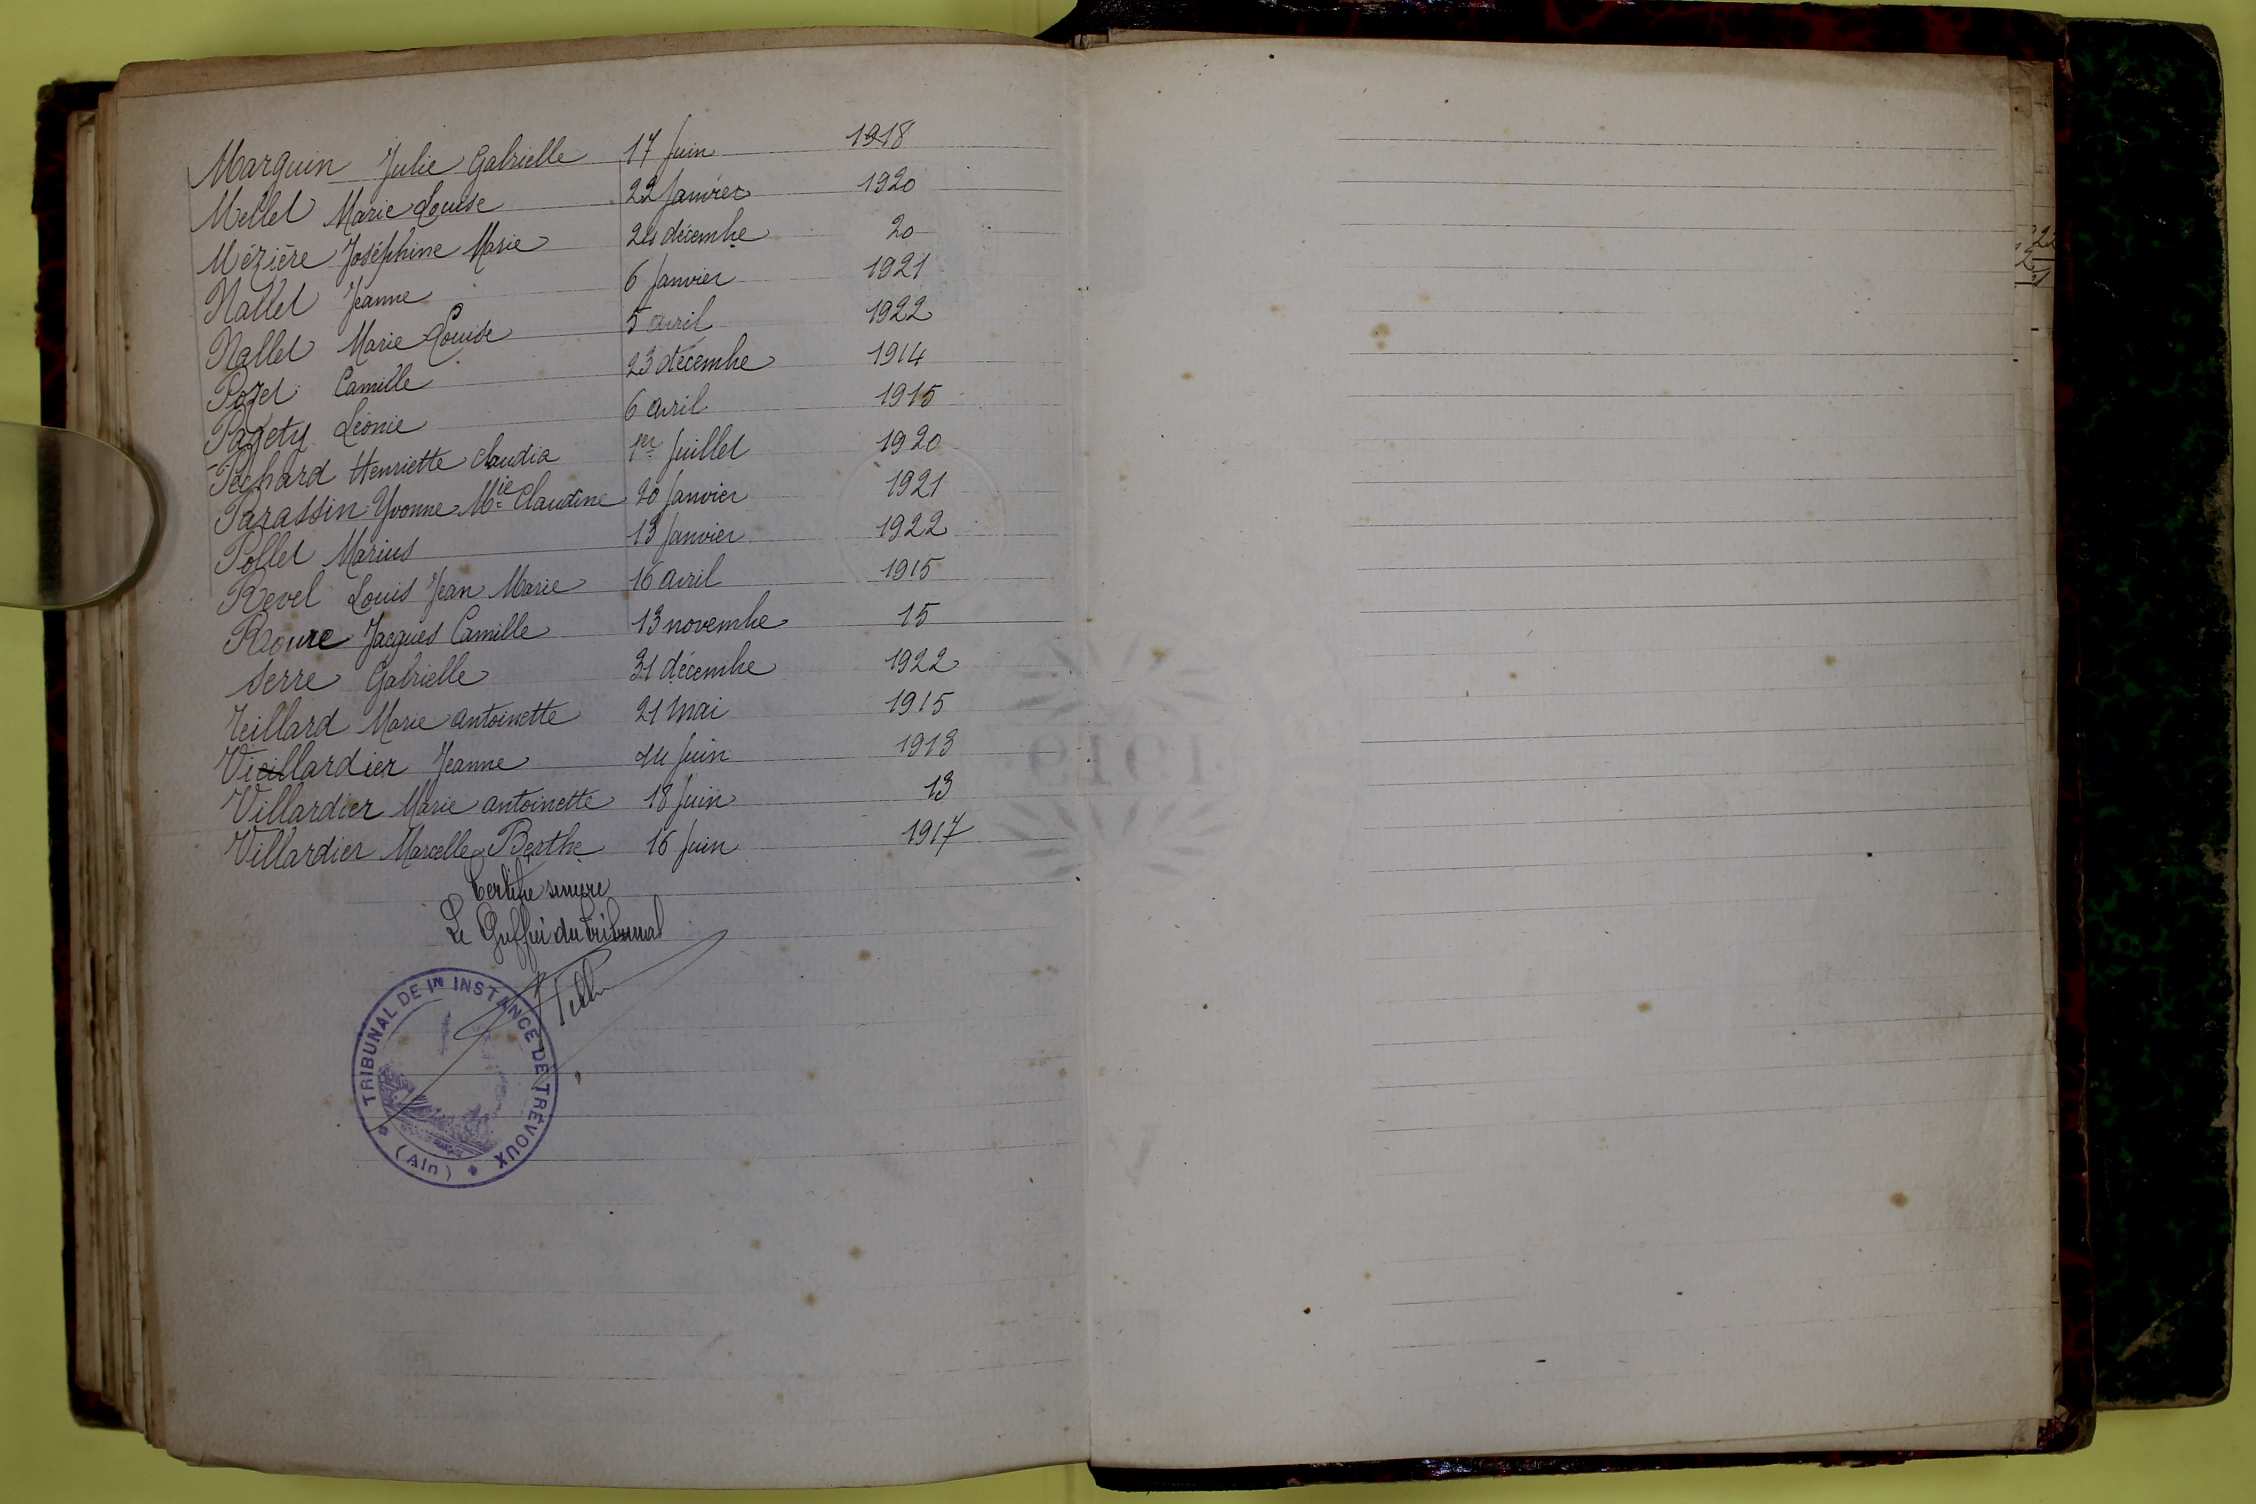 Marguin Julie Gabrielle 17 Juin 1918
Mellet Marie Louise 22 Janvier 1920
Mézière Joséphine Marie 24 décembre 20
Nallet Jeanne 6 Janvier 1921
Nallet Marie Louise 5 avril 1922
Pozet Camille 23 décembre 1914
Pagety Léonie 6 avril 1915
Péchard Henriette Claudia 1er Juillet 1920
Parassin Yvonne Mie Claudine 20 Janvier 1921
Pollet Marius 13 Janvier 1922
Revel Louis Jean Marie 16 avril 1915
Roure Jacques Camille 13 novembre 15
Serre Gabrielle 31 décembre 1922
Teillard Marie Antoinette 21 Mai 1915
Vieillardier Jeanne 14 Juin 1913
Villardier Marie Antoinette 18 Juin 13
Villardier Marcelle Berthe 16 Juin 1917
Certifié sincère
Le Greffier du Tribunal
TRIBUNAL DE 1re INSTANCE DE TRÉVOUX
(Ain)
1919